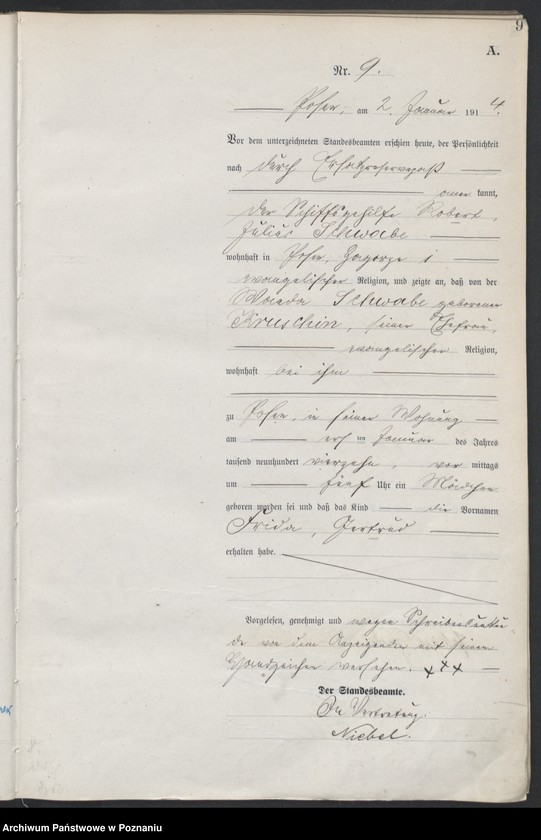 9
A.
Nr. 9.
Posen, am 2. Januar 1914.
Vor dem unterzeichneten Standesbeamten erschien heute, der Persönlichkeit
nach durch Ersatzreservepaß
aner kannt,
der Schiffsgehilfe Robert,
Julius Schwabe
wohnhaft in Posen, Zagorze 1
evangelischer Religion, und zeigte an, daß von der
Schwabe geborenen
Kruschin, seiner Ehefrau,
evangelischer Religion,
wohnhaft bei ihm
zu Posen, in seiner Wohnung
am ersten Januar des Jahres
tausend neunhundert vierzehn, vor mittags
um fünf Uhr ein Mädchen
geboren worden sei und daß das Kind die Vornamen
Frida, Gertrud
erhalten habe.
Vorgelesen, genehmigt und wegen Schreibensunkun
de von dem Anzeigenden mit seinem
Handzeichen versehen. +++
Der Standesbeamte.
In Vertretung.
Niebel.
Archiwum Państwowe w Poznaniu